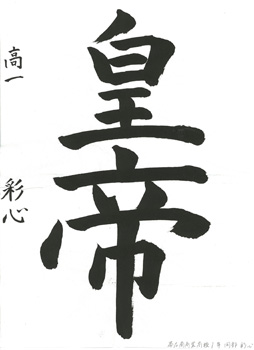 皇帝
高一 彩心